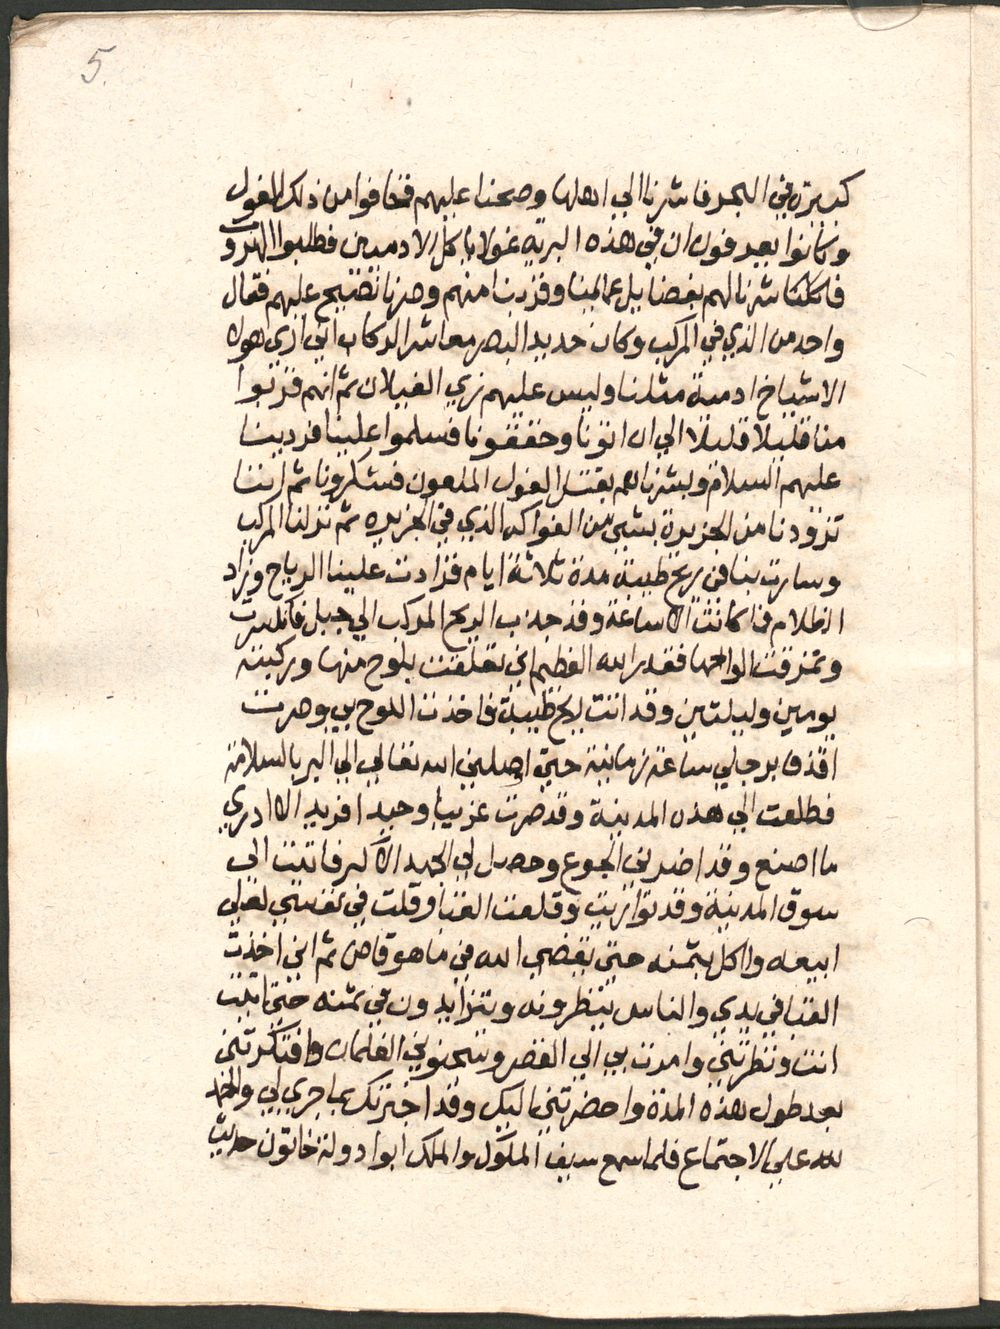 5.
كبيرة في البحر فاشرنا الي اهلها وصحنا عليهم فخافوا من ذلك الغول
وكانوا يعرفون ان في هذه البريه غولا ياكل الادميين فطلبوا الهروب
فاشرنا لهم بفضايل عمايمنا وقربنا منهم وصرنا نصيح عليهم فقال
واحد من الذي في المركب وكان حديد البصر معاشر الركاب اني اري هولاء
الاشباخ ادمية مثلنا وليس عليهم زي الغيلان ثم انهم قربوا
منا قليلا قليلا الي ان اتونا وحققونا فسلموا علينا فردينا
عليهم السلام وبشرناهم بقتل الغول الملعون فشكرونا ثم اننا
تزودنا من الجزيرة بشي من الفواكه الذي في الجزيره ثم نزلنا المركب
وسارت بنا في ريح طيبة مدة ثلاثة ايام فزادت علينا الرياح وزاد
الظلام فما كانت الا ساعة وقد جذب الريح المركب الي جبل فانكسرت
وتمزقت الواحها فقدر الله العظيم اني تعلقت بلوح منها وركبته
يومين وليلتين وقد اتت ريح طيبة فاخذت اللوح بي وصرت
اقذف برجلي ساعة زمانية حتي اوصلني الله تعالي الي البر بالسلامة
فطلعت الي هذه المدينة وقد صرت غريبا وحيدا فريدا لا ادري
ما اصنع وقد اضرني الجوع وحصل لي الجهد الاكبر فاتيت الي
سوق المدينة وقد تواريت وقلعت القبا وقلت في نفسي لعلي
ابيعه واكل بثمنه حتي يقضي الله في ما هو قاض ثم اني اخذت
القبا في يدي والناس ينظرونه ويتزايدون في ثمنه حتي اتيت
انت ونظرتني وامرت بي الي القصر وسجنوني الغلمان وافتكرتني
بعد طول هذه المدة واحضرتني اليك وقد اخبرتك بما جري لي والحمد
لله علي الاجتماع فلما سمع سيف الملوك والملك ابوا دولة خاتون حديث